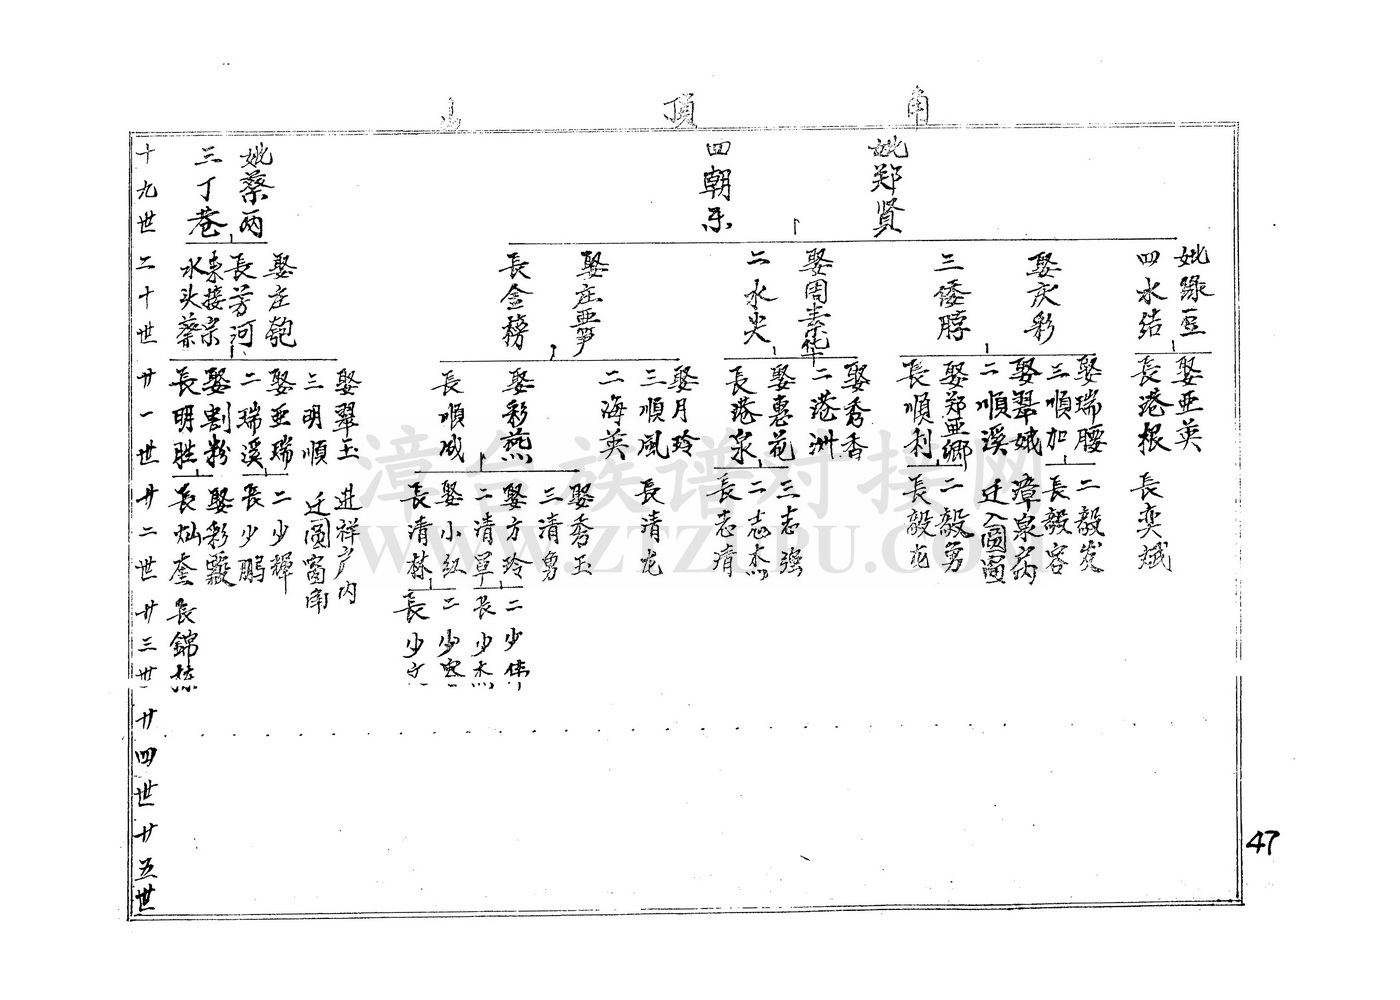 山 頂 角
十九世
妣蔡両
三丁巷
四朝禾
妣郑贤
二十世
娶庄匏
長芳河
來接宗
水头蔡
長金榜
娶庄亜笋
二水尖
娶周素华
三倭脖
娶庆彩
四水结
妣绿豆
廿一世
長明胜
娶割粉
二瑞溪
娶亚瑞
三明順
娶翠玉
長順成
娶彩燕
二海英
三順風
娶月玲
長港泉
娶惠花
二港洲
娶秀香
長順利
娶郑亚卿
二順溪
娶翠娥
三順加
娶瑞腰
長港根
娶亚英
廿二世
長灿奎
娶彩霞
長少鹏
二少輝
迁圆窗角
进祥户内
長清林
娶小红
二清军
娶方玲
三清勇
娶秀玉
長清龙
長志清
二志杰
三志强
長毅龙
二毅勇
迁入圆窗
漳泉户内
長毅容
二毅发
長奕斌
廿三世
長錦
長少文
二少宏
長少杰
二少伟
廿四世
廿五世
47
漳台族谱对接网
WWW.ZTZUPU.COM